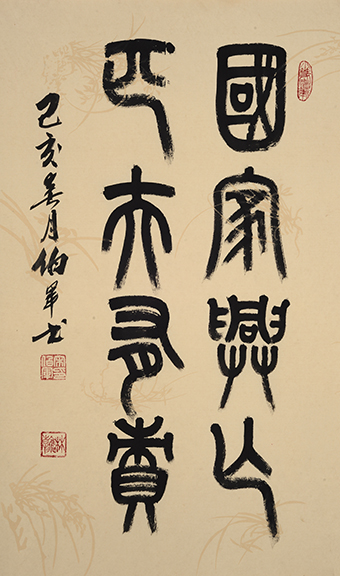 國家興亡
匹夫有責
己亥春月伯軍書